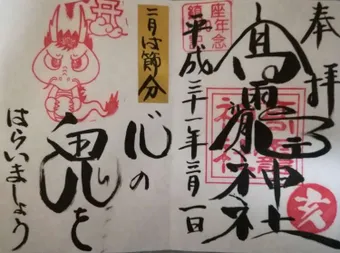 奉拝
高龗神社
平成三十一年二月一日
亥
二月は節分
心の
鬼を
はらいましょう